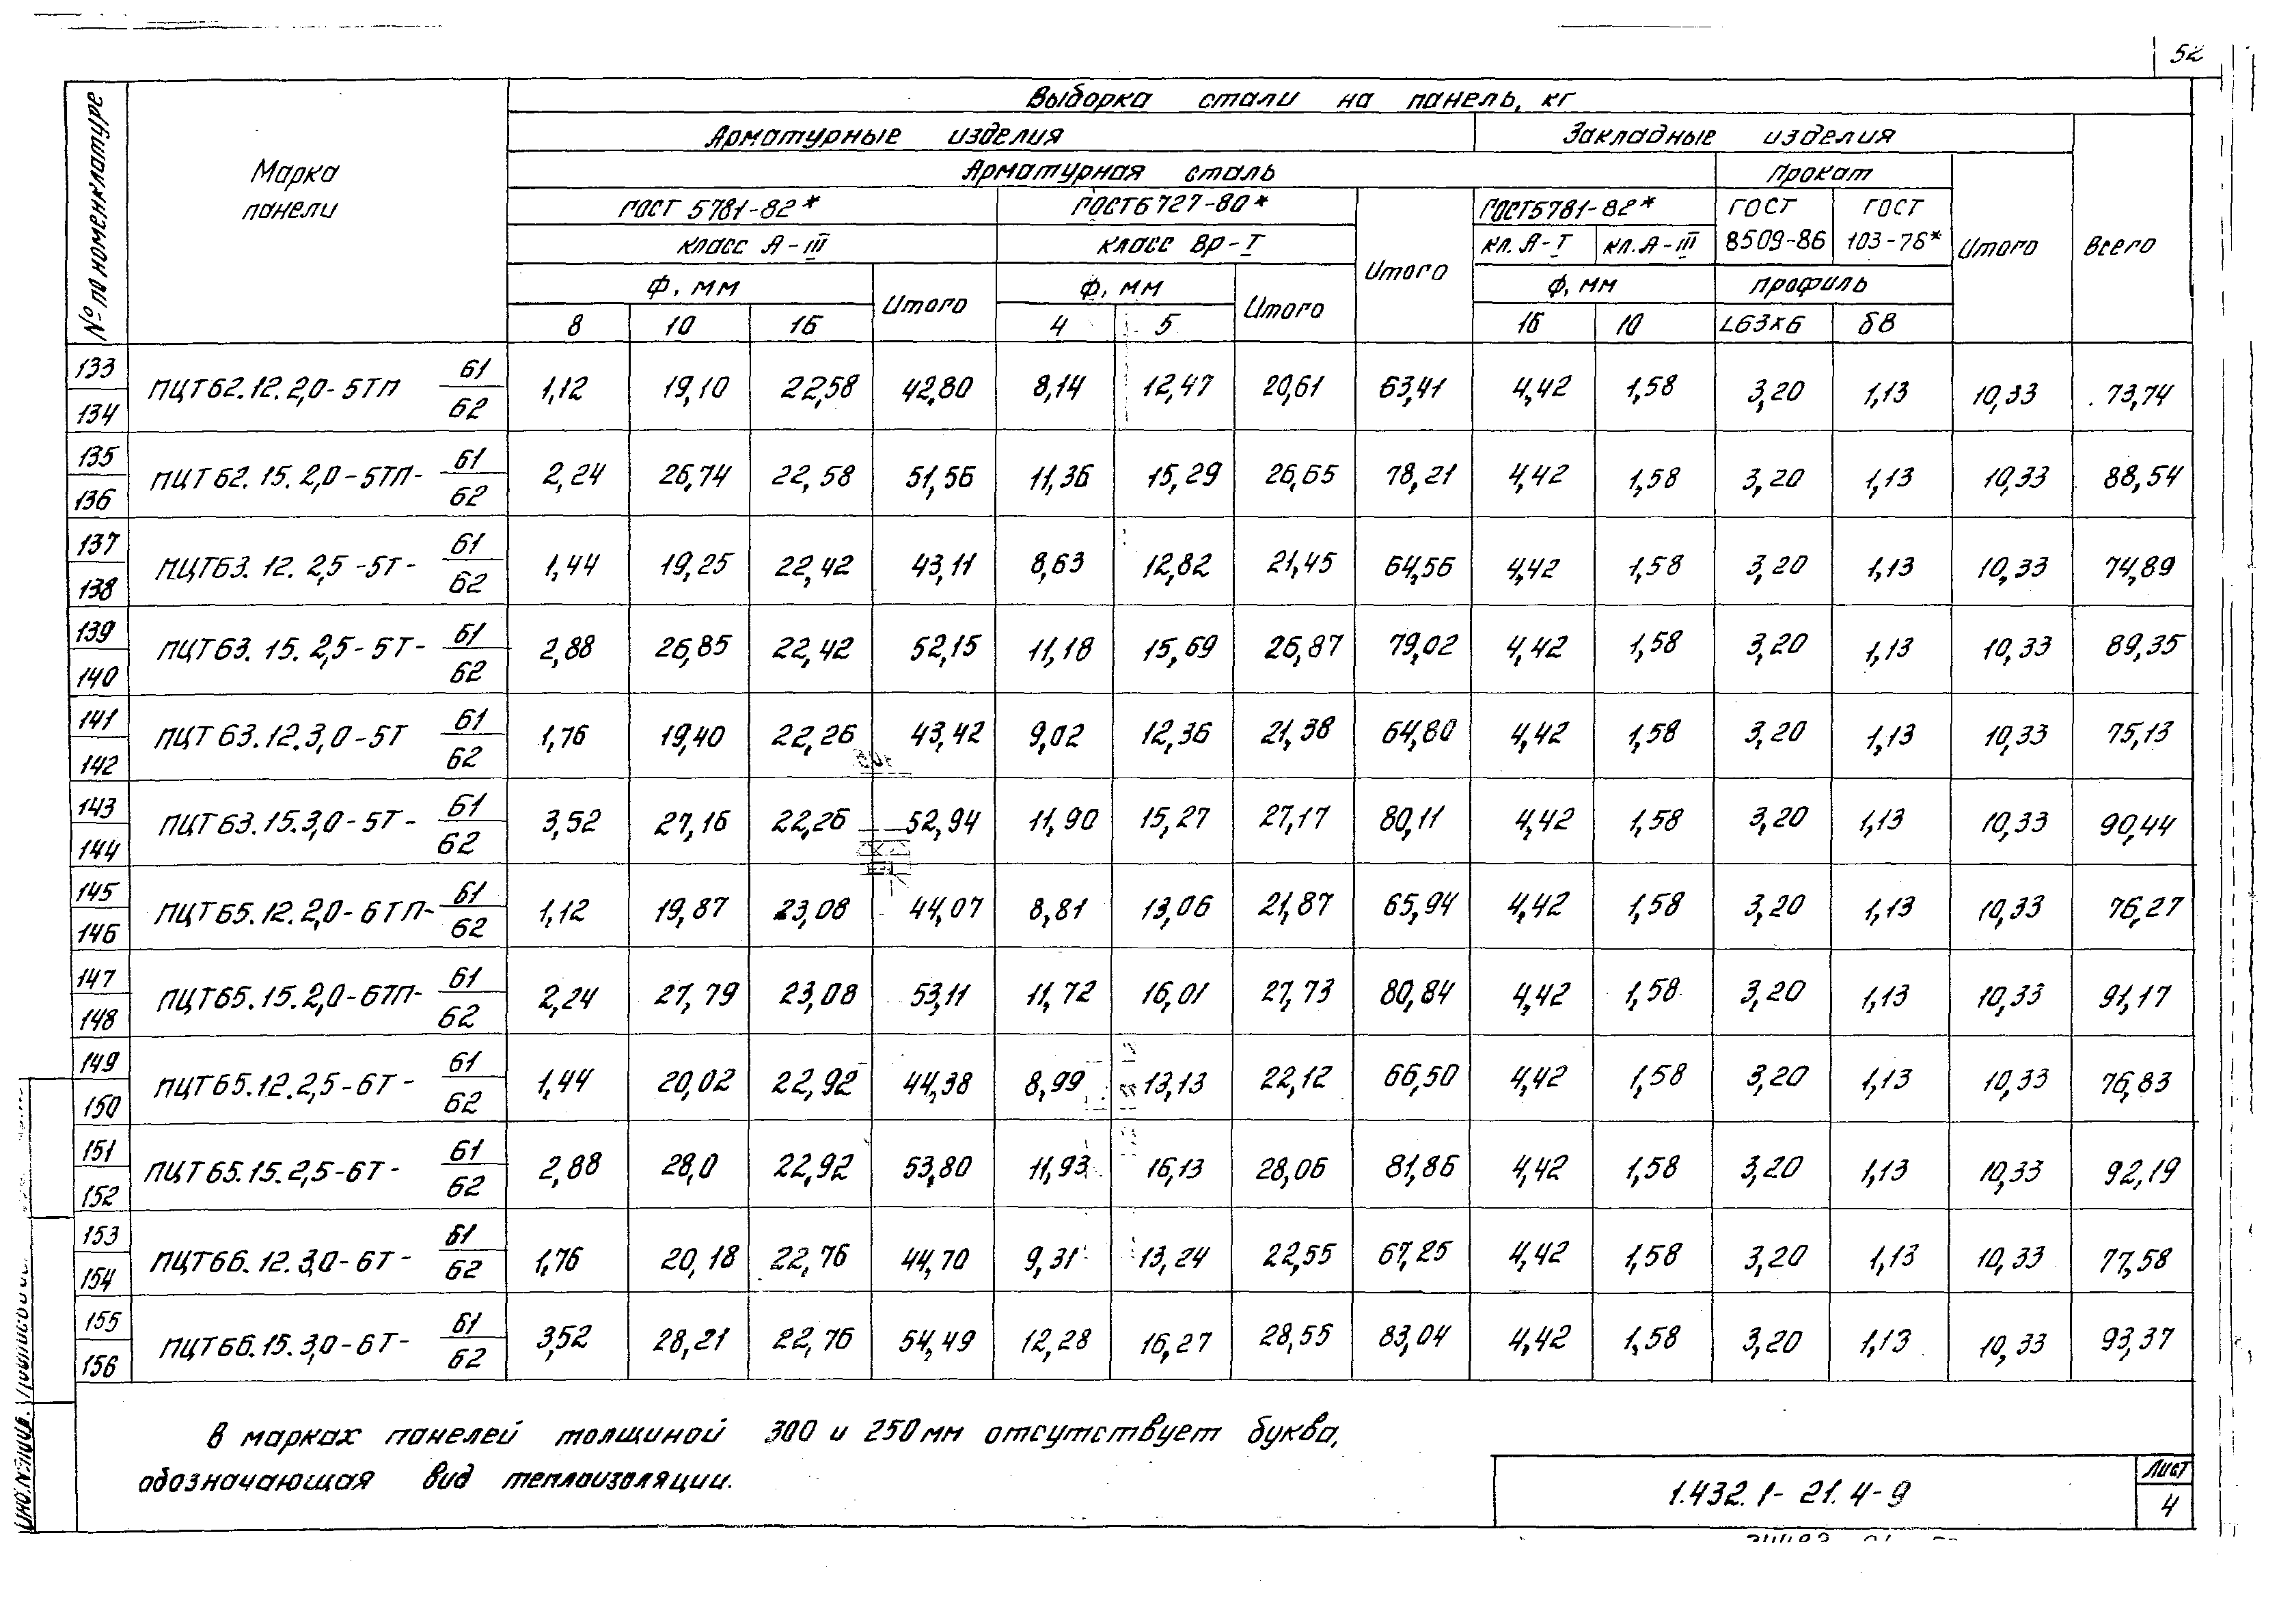 52
№ по номенклатуре
Марка панели
Выборка стали на панель, кг
Арматурные изделия
Закладные изделия
Арматурная сталь
Прокат
ГОСТ 5781-82*
ГОСТ 6727-80*
ГОСТ 5781-82*
ГОСТ 8509-86
ГОСТ 103-76*
класс А-III
класс Вр-I
Итого
кл. А-I
кл. А-III
Итого
Всего
Ф, мм
Итого
Ф, мм
Итого
Ф, мм
профиль
8 10 16 4 5 16 10 L63х6 δ8
133 134 ПЦТ62.12.2,0-5ТП 61 62 1,12 19,10 22,58 42,80 8,14 12,47 20,61 63,41 4,42 1,58 3,20 1,13 10,33 73,74
135 136 ПЦТ62.15.2,0-5ТП- 61 62 2,24 26,74 22,58 51,56 11,36 15,29 26,65 78,21 4,42 1,58 3,20 1,13 10,33 88,54
137 138 ПЦТ63.12.2,5-5Т- 61 62 1,44 19,25 22,42 43,11 8,63 12,82 21,45 64,56 4,42 1,58 3,20 1,13 10,33 74,89
139 140 ПЦТ63.15.2,5-5Т- 61 62 2,88 26,85 22,42 52,15 11,18 15,69 26,87 79,02 4,42 1,58 3,20 1,13 10,33 89,35
141 142 ПЦТ63.12.3,0-5Т 61 62 1,76 19,40 22,26 43,42 9,02 12,36 21,38 64,80 4,42 1,58 3,20 1,13 10,33 75,13
143 144 ПЦТ63.15.3,0-5Т- 61 62 3,52 27,16 22,26 52,94 11,90 15,27 27,17 80,11 4,42 1,58 3,20 1,13 10,33 90,44
145 146 ПЦТ65.12.2,0-6ТП- 61 62 1,12 19,87 23,08 44,07 8,81 13,06 21,87 65,94 4,42 1,58 3,20 1,13 10,33 76,27
147 148 ПЦТ65.15.2,0-6ТП- 61 62 2,24 27,79 23,08 53,11 11,72 16,01 27,73 80,84 4,42 1,58 3,20 1,13 10,33 91,17
149 150 ПЦТ65.12.2,5-6Т- 61 62 1,44 20,02 22,92 44,38 8,99 13,13 22,12 66,50 4,42 1,58 3,20 1,13 10,33 76,83
151 152 ПЦТ65.15.2,5-6Т- 61 62 2,88 28,0 22,92 53,80 11,93 16,13 28,06 81,86 4,42 1,58 3,20 1,13 10,33 92,19
153 154 ПЦТ66.12.3,0-6Т- 61 62 1,76 20,18 22,76 44,70 9,31 13,24 22,55 67,25 4,42 1,58 3,20 1,13 10,33 77,58
155 156 ПЦТ66.15.3,0-6Т- 61 62 3,52 28,21 22,76 54,49 12,28 16,27 28,55 83,04 4,42 1,58 3,20 1,13 10,33 93,37
В марках панелей толщиной 300 и 250 мм отсутствует буква,
обозначающая вид теплоизоляции.
1.432.1-21.4-9
Лист
4